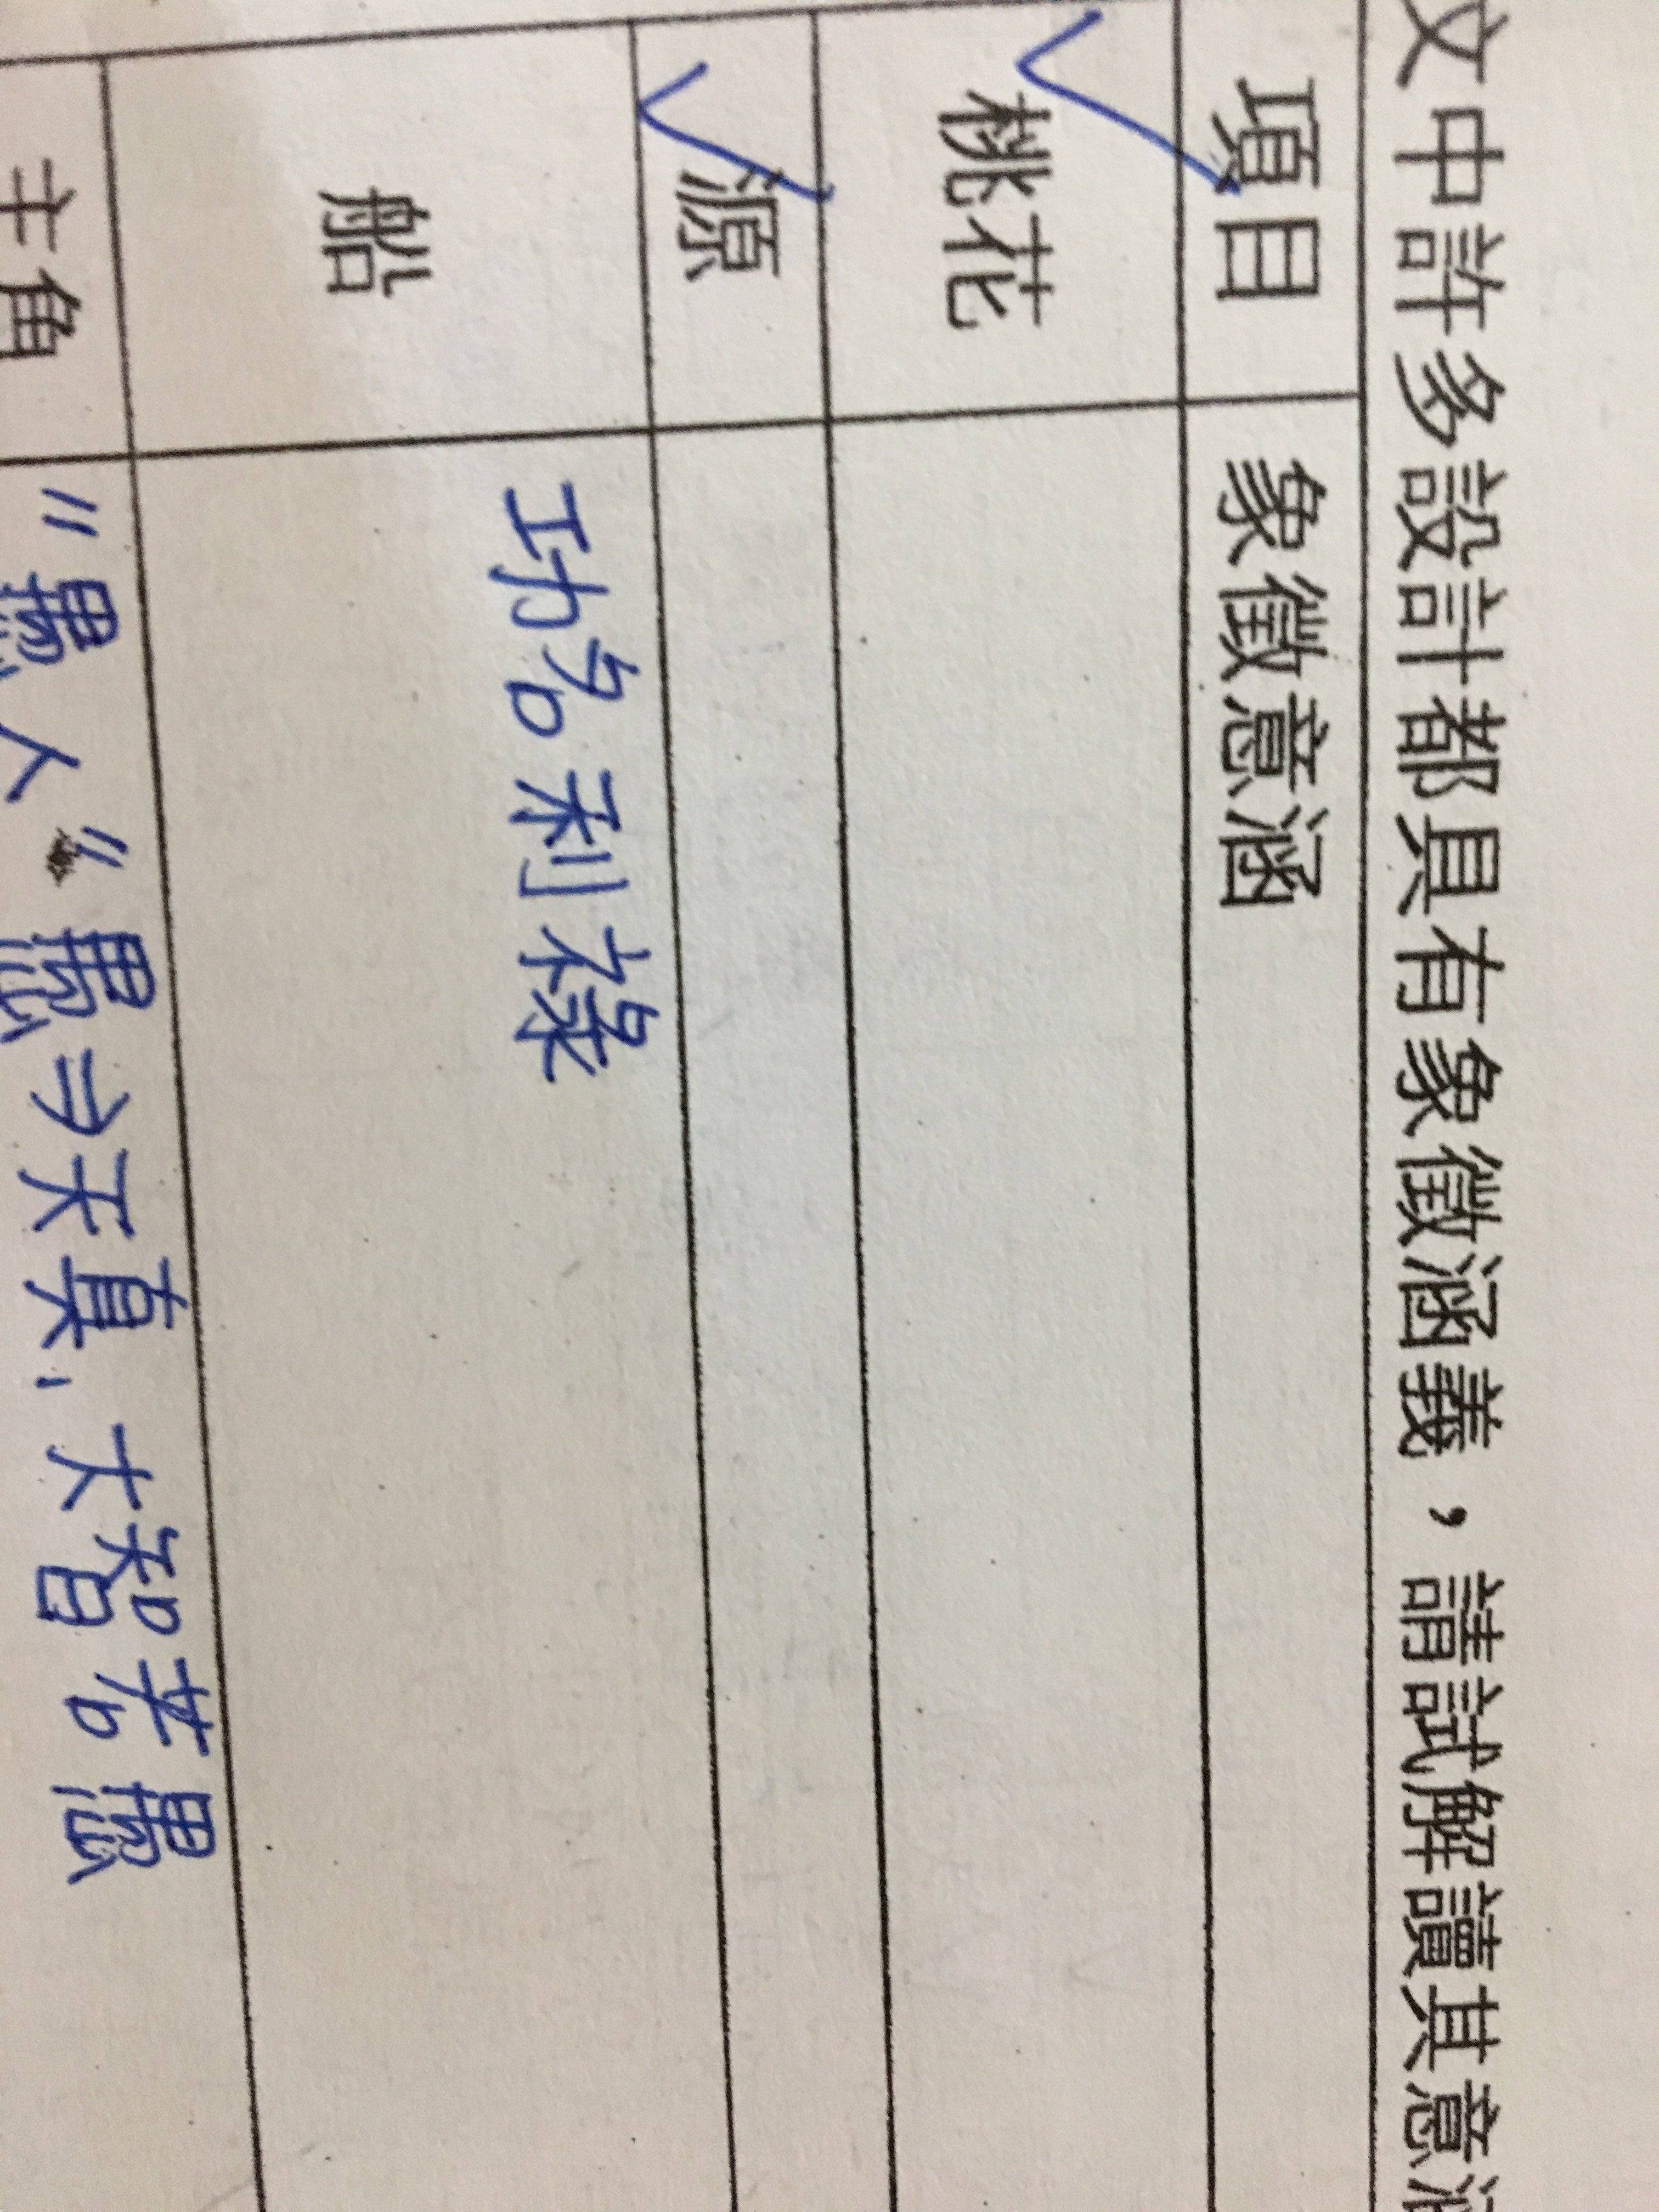 文中許多設計都具有象徵涵義，請試解讀其意涵
項目 象徵意涵
桃花
源
船 功名利祿
主角 "愚人" 愚⇒天真、大智若愚